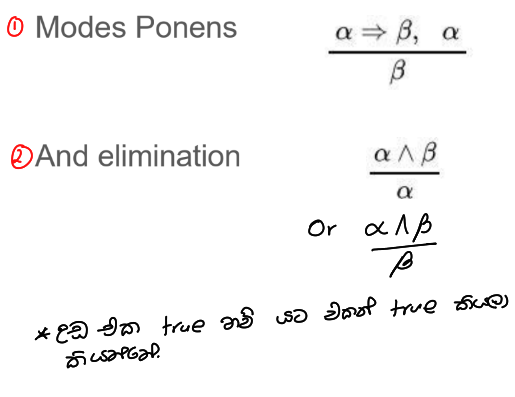 ① Modes Ponens α ⇒ β, α
β
② And elimination α ∧ β
α
Or α ∧ β
β
* උඩ එක true නම් යට එකත් true කියලා
කියන්නේ.